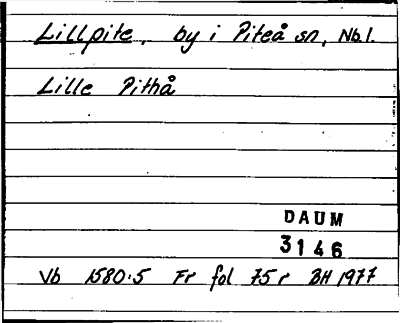 Lillpite, by i Piteå sn, Nb l.
Lille Pithå
DAUM
3146
Vb 1580:5 Fr fol 75 r BH 1977